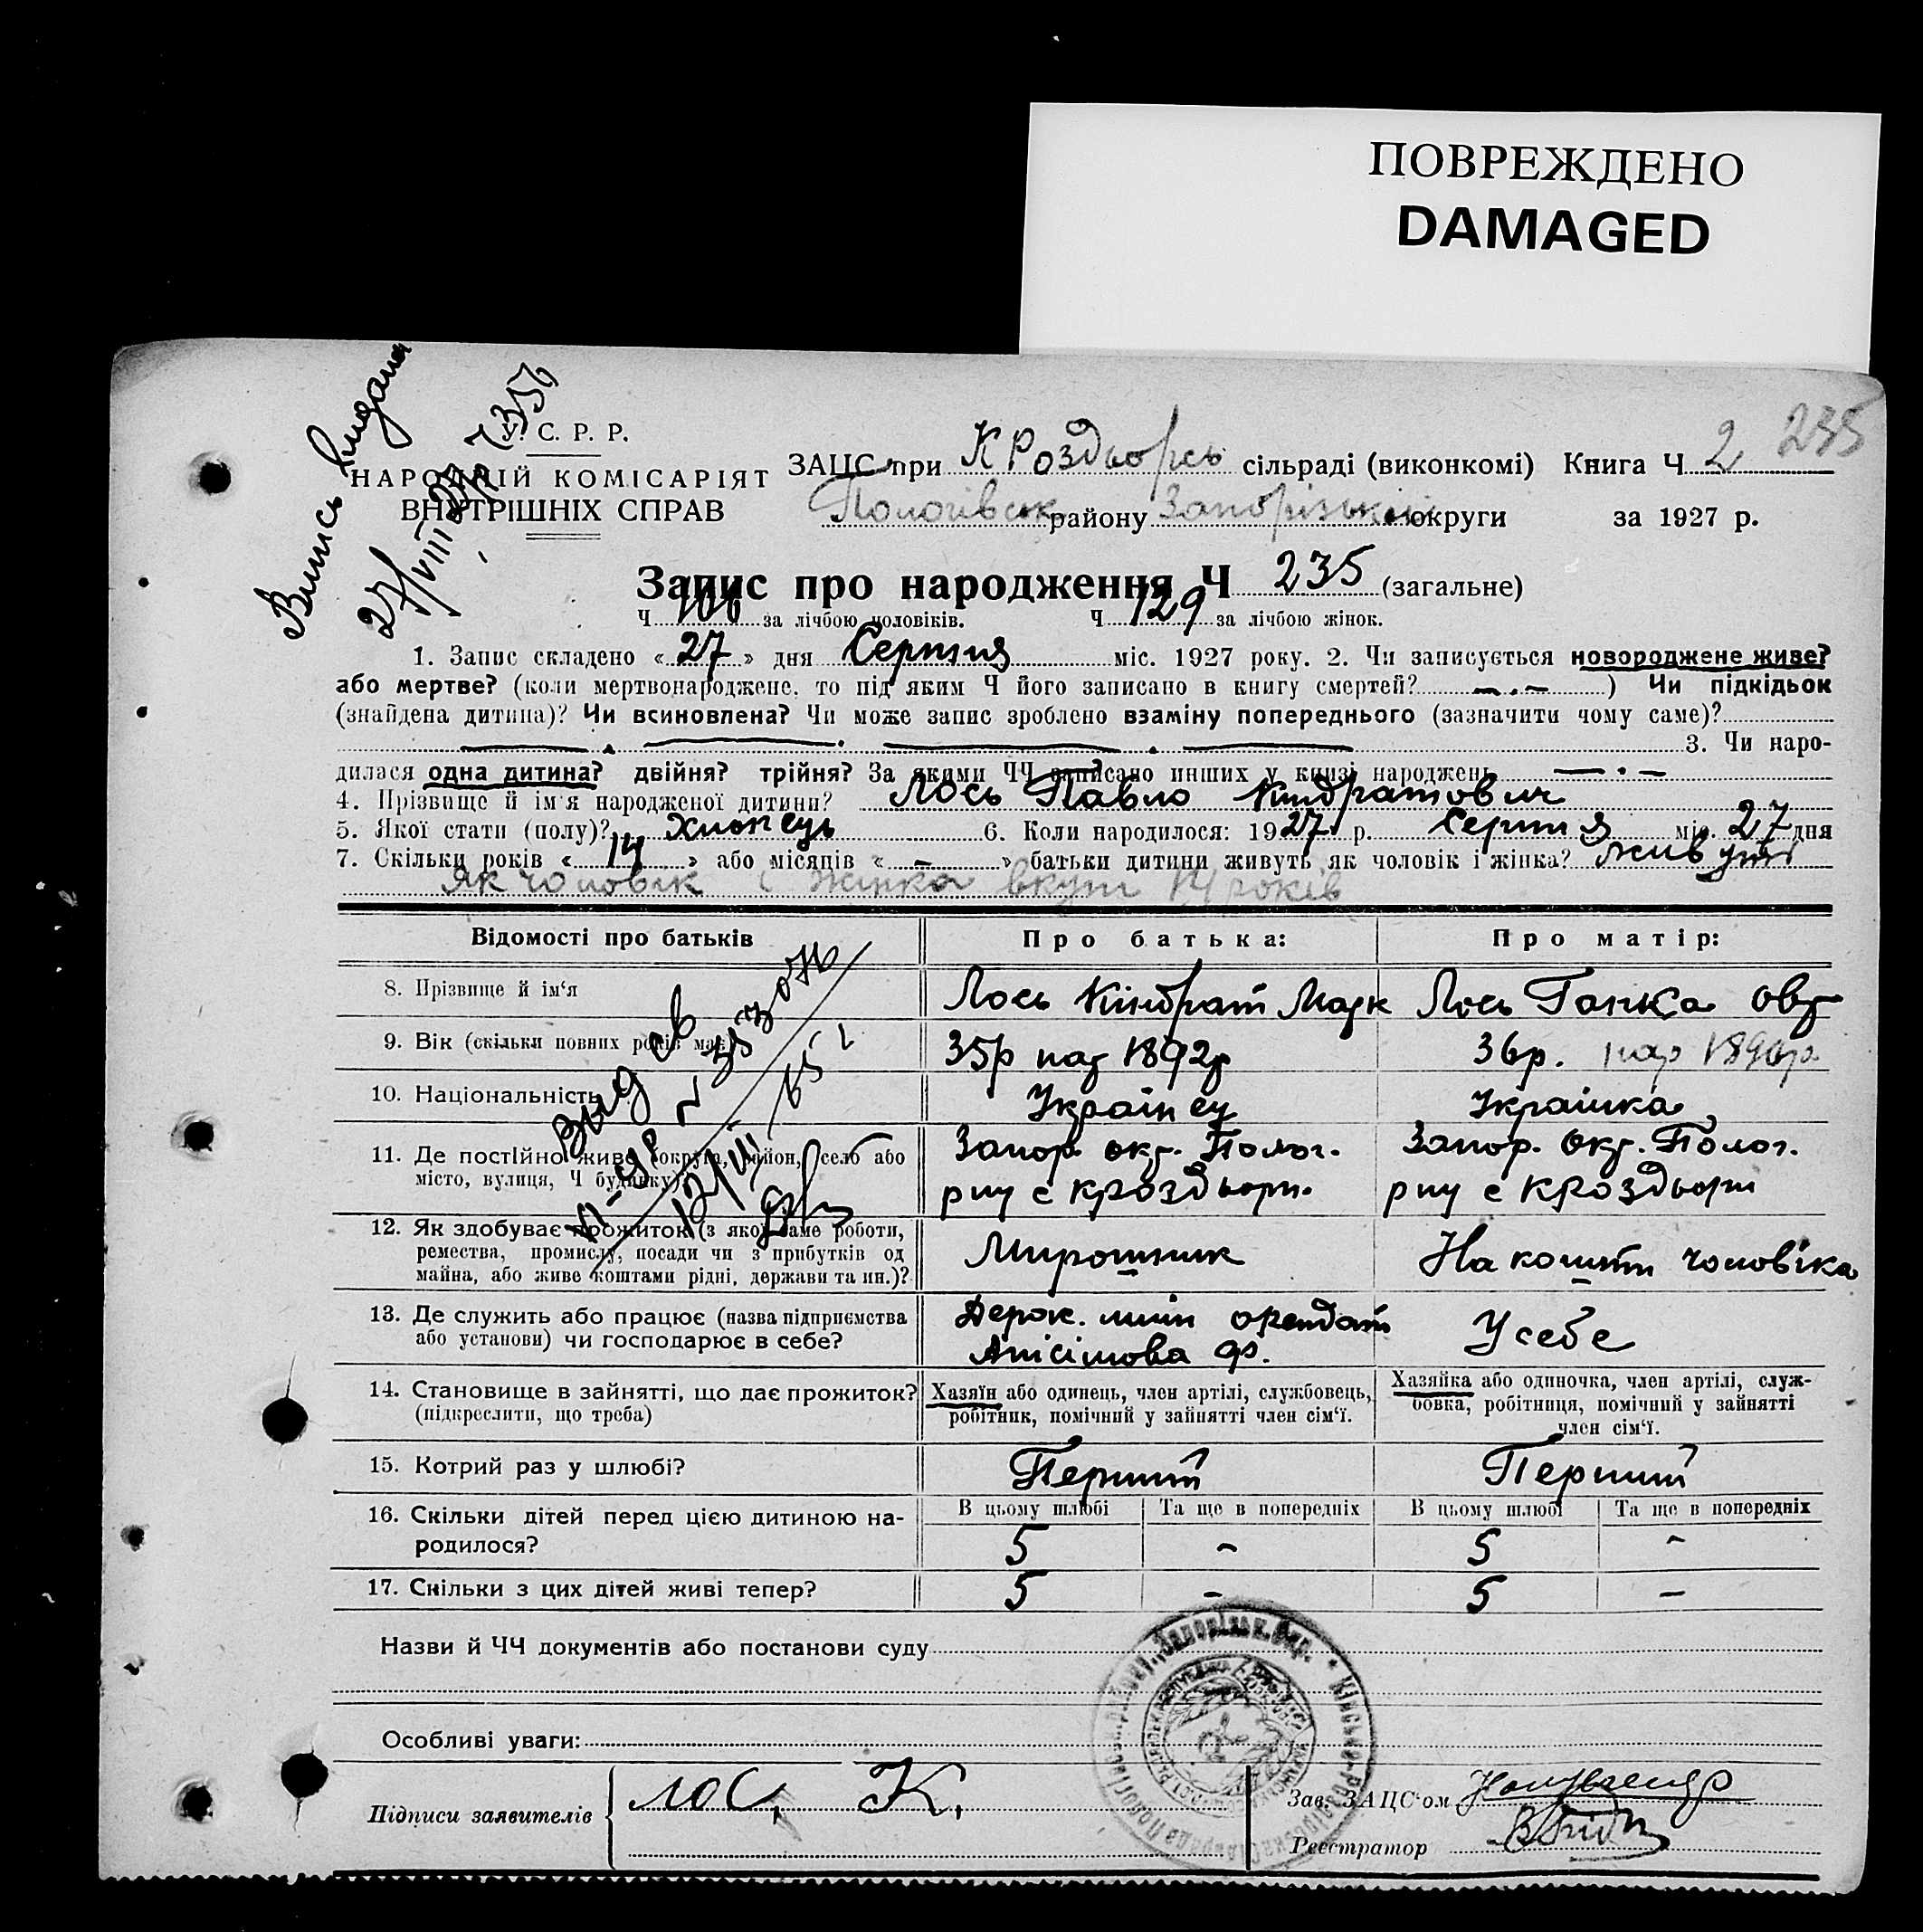 ПОВРЕЖДЕНО
DAMAGED
Випись видана
27/VIII 27р
У. С. Р. Р.
НАРОДНІЙ КОМІСАРІЯТ
ВНУТРІШНІХ СПРАВ
ЗАЦС при КРоздьорсь сільраді (виконкомі) Книга Ч 2 235
Пологівськ району Запорізької округи за 1927 р.
Запис про народження Ч 235 (загальне)
Ч 106 за лічбою чоловіків. Ч 129 за лічбою жінок.
1. Запис складено « 27 » дня Серпня міс. 1927 року. 2. Чи записується новороджене живе?
або мертве? (коли мертвонароджене, то під яким Ч його записано в книгу смертей? —.— ) Чи підкідьок
(знайдена дитина)? Чи всиновлена? Чи може запис зроблено взаміну попереднього (зазначити чому саме)?
3. Чи наро-
дилася одна дитина? двійня? трійня? За якими ЧЧ записано инших у книзі народжень —.—
4. Прізвище й ім'я народженої дитини? Лось Павло Кіндратович
5. Якої стати (полу)? Хлопець 6. Коли народилося: 1927 р. Серпня міс. 27 дня
7. Скільки років « 14 » або місяців « - » батьки дитини живуть як чоловік і жінка? живуть
як чоловік і жінка вкупі 14 років
Відомості про батьків Про батька: Про матір:
8. Прізвище й ім'я Лось Кіндрат Марк Лось Ганка
9. Вік (скільки повних років має) 35р нар 1892р 36р. нар
10. Національність Українец Українка
11. Де постійно живе (округа, район, село або Запор. окр. Полог. Запор. Окр. Полог.
місто, вулиця, Ч будинку) рну с КРоздьори. рну с КРоздьори
12. Як здобуває прожиток (з якої саме роботи,
ремества, промислу, посади чи з прибутків од Мирошник На кошти чоловіка
майна, або живе коштами рідні, держави та ин.)?
13. Де служить або працює (назва підприємства Держ. млин орендат У себе
або установи) чи господарює в себе? Анісімова
14. Становище в зайнятті, що дає прожиток? Хазяїн або одинець, член артілі, службовець, Хазяйка або одиночка, член артілі, служ-
(підкреслити, що треба) робітник, помічний у зайнятті член сім'ї. бовка, робітниця, помічний у зайнятті
член сім'ї.
15. Котрий раз у шлюбі? Перший Перший
В цьому шлюбі Та ще в попередніх В цьому шлюбі Та ще в попередніх
16. Скільки дітей перед цією дитиною на-
родилося? 5 - 5 -
17. Скільки з цих дітей живі тепер? 5 - 5 -
Назви й ЧЧ документів або постанови суду
Особливі уваги:
Підписи заявителів лос, К.
Зав. ЗАЦС'ом
Реєстратор